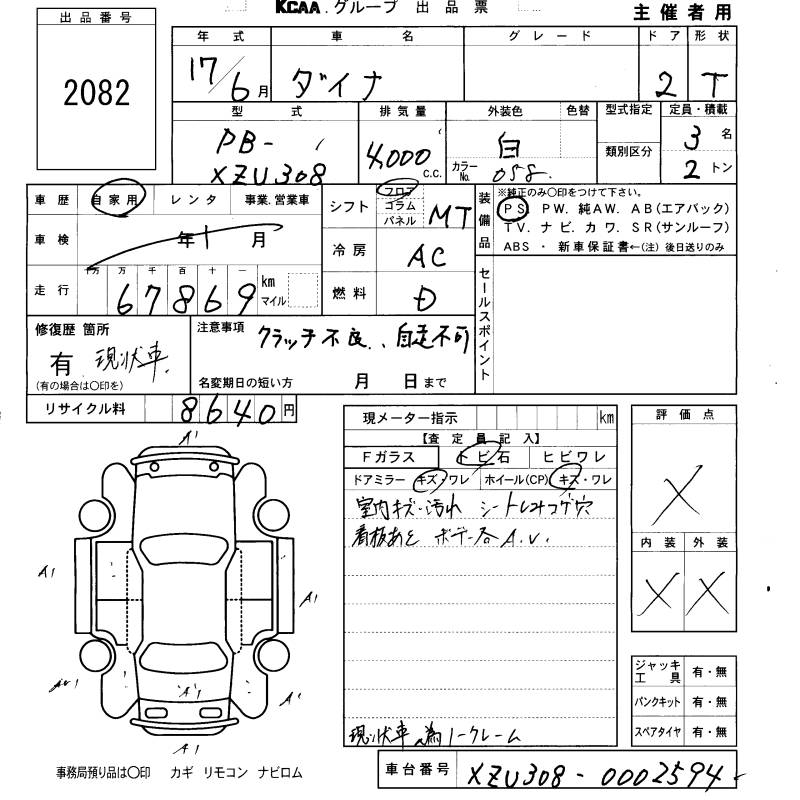 KCAA.グループ 出品票
主催者用
出品番号
2082
年式 車名 グレード ドア 形状
17/6月 ダイナ 2 T
型式 排気量 外装色 色替 型式指定 定員・積載
PB- 4,000 c.c. 白 類別区分 3名
XZU308 カラーNo. 058. 2トン
車歴 自家用 レンタ 事業.営業車
車検 年 月
走行 十万 万 千 百 十 一 km マイル
67869
シフト フロア コラム パネル MT
冷房 AC
燃料 D
装備品
※純正のみ○印をつけて下さい。
PS. PW. 純AW. AB(エアバック)
TV. ナビ. カワ. SR(サンルーフ)
ABS ・ 新車保証書←(注) 後日送りのみ
セールスポイント
修復歴 箇所
有 現状車
(有の場合は○印を)
注意事項 クラッチ不良、自走不可
名変期日の短い方 月 日まで
リサイクル料 8640円
現メーター指示 km
【査定員記入】
Fガラス トビ石 ヒビワレ
ドアミラー キズ・ワレ ホイール(CP) キズ・ワレ
室内キズ・汚れ シートしみコゲ穴
看板あと ボデー各A.U.
現状車為ノークレーム
評価点
X
内装 外装
X X
ジャッキ工具 有・無
パンクキット 有・無
スペアタイヤ 有・無
A1
A1
A1
A1
A1
A1
事務局預り品は○印 カギ リモコン ナビロム
車台番号 XZU308-0002594